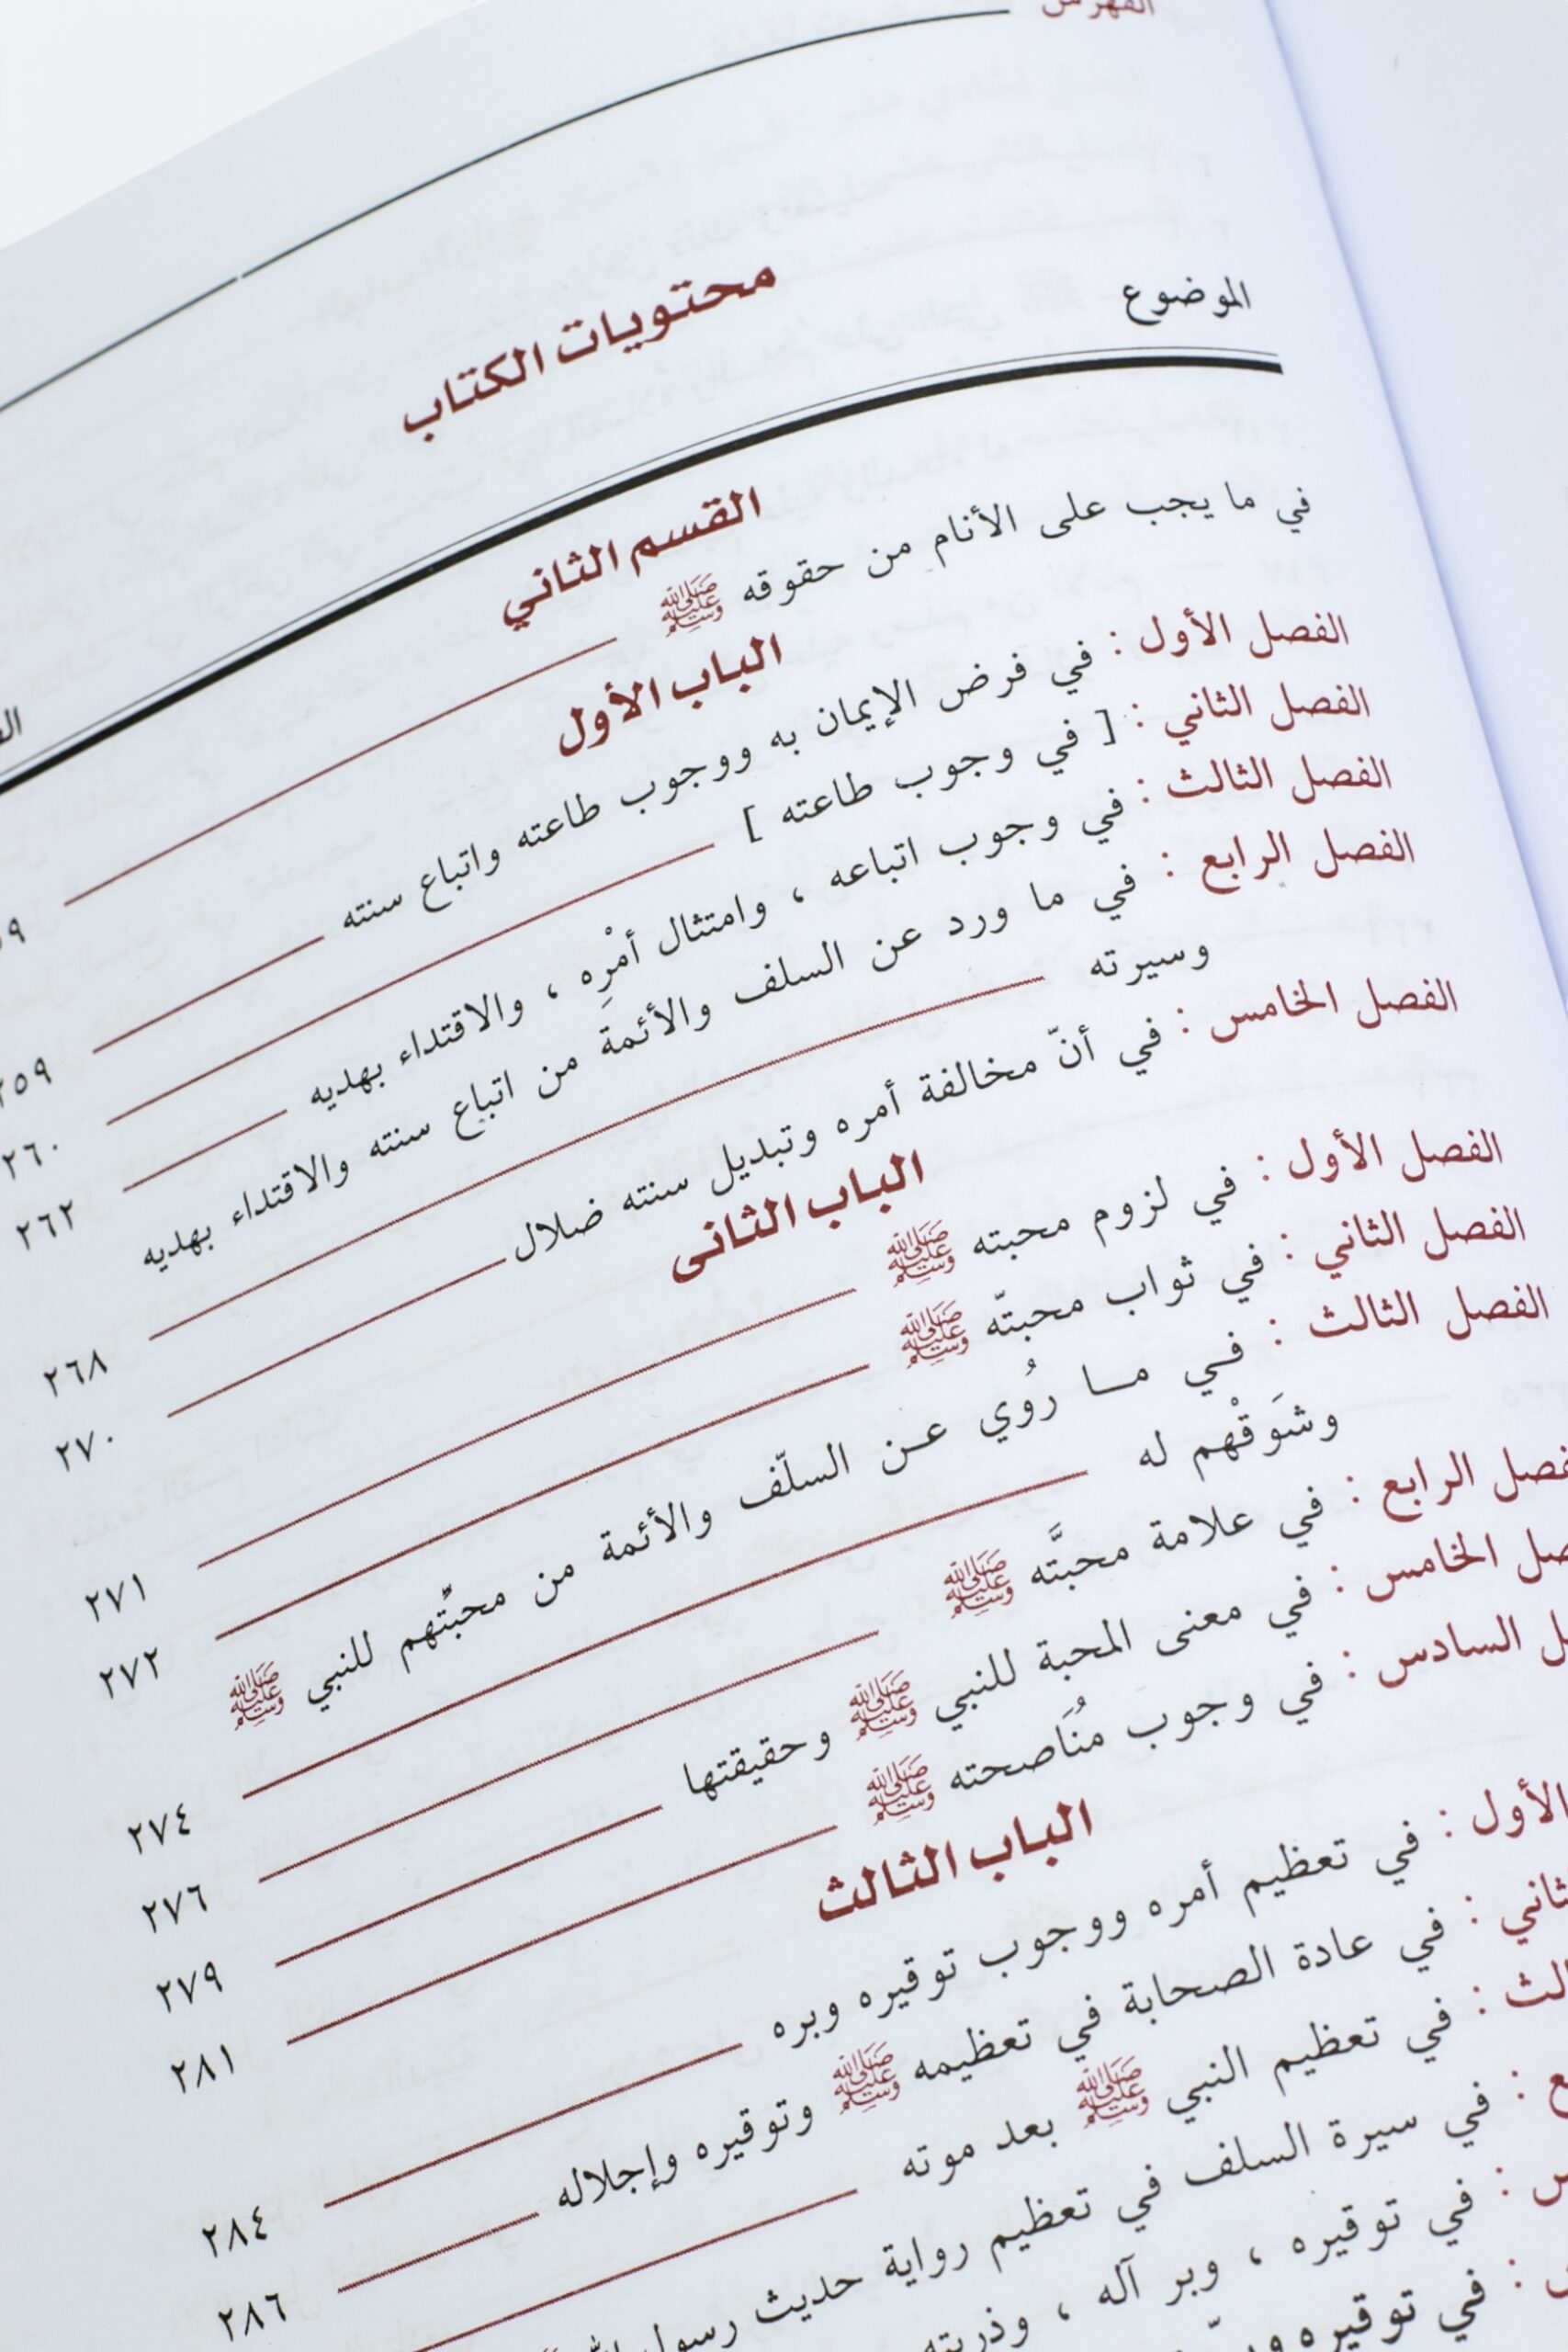 الفهرس
محتويات الكتاب
الموضوع
القسم الثاني
في ما يجب على الأنام من حقوقه ﷺ
الباب الأول
الفصل الأول : في فرض الإيمان به ووجوب طاعته واتباع سنته ٢٥٩
الفصل الثاني : [ في وجوب طاعته ] ٢٦٠
الفصل الثالث : في وجوب اتباعه ، وامتثال أمْرِه ، والاقتداء بهديه ٢٦٢
الفصل الرابع : في ما ورد عن السلف والأئمة من اتباع سنته والاقتداء بهديه
وسيرته ٢٦٨
الفصل الخامس : في أنّ مخالفة أمره وتبديل سنته ضلال ٢٧٠
الباب الثانى
الفصل الأول : في لزوم محبته ﷺ ٢٧١
الفصل الثاني : في ثواب محبتّه ﷺ ٢٧٢
الفصل الثالث : في ما رُوي عن السلّف والأئمة من محبّتهم للنبي ﷺ
وشَوَقْهم له ٢٧٤
الرابع : في علامة محبَّته ﷺ ٢٧٦
الخامس : في معنى المحبة للنبي ﷺ وحقيقتها ٢٧٩
السادس : في وجوب مُنَاصحته ﷺ ٢٨١
الباب الثالث
الأول : في تعظيم أمره ووجوب توقيره وبره ٢٨٤
: في عادة الصحابة في تعظيمه ﷺ وتوقيره وإجلاله ٢٨٦
: في تعظيم النبي ﷺ بعد موته
: في سيرة السلف في تعظيم رواية حديث رسول
: في توقيره ، وبر آله ، وذريته
: في توقيره